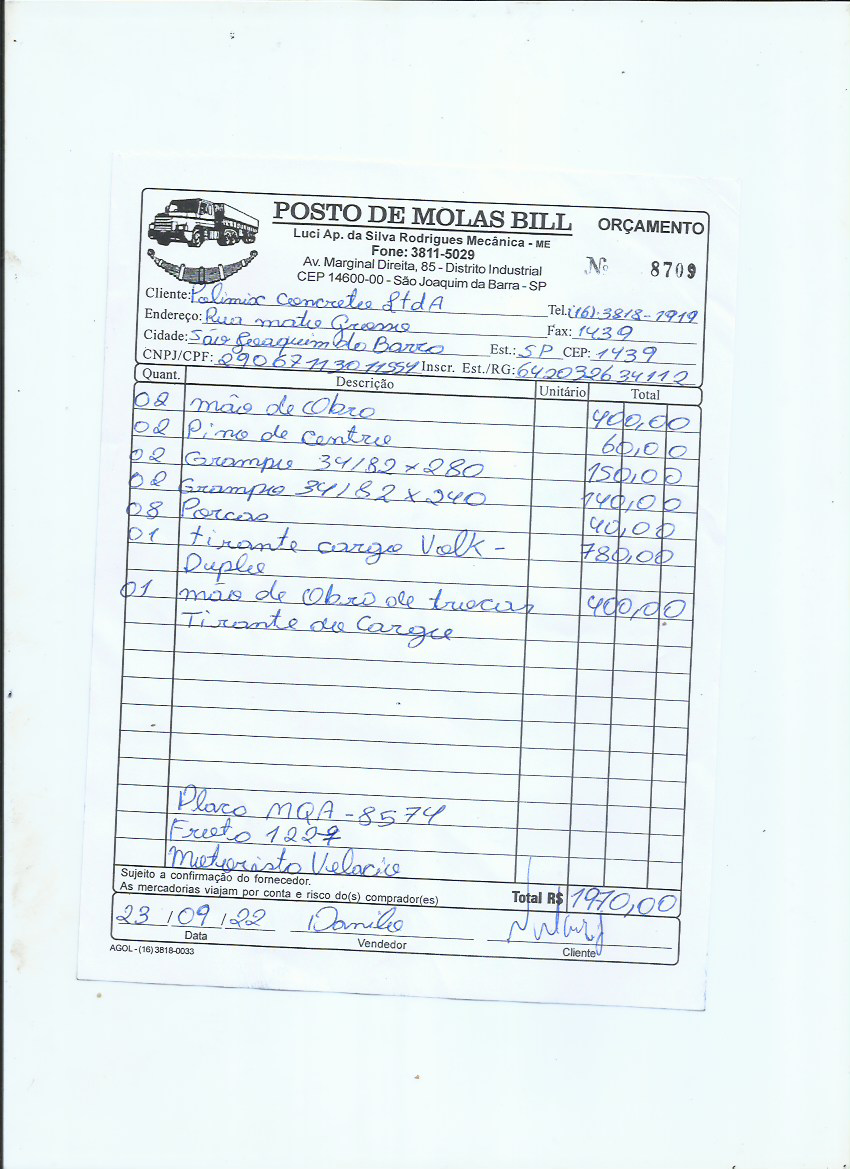 POSTO DE MOLAS BILL ORÇAMENTO
Luci Ap. da Silva Rodrigues Mecânica - ME
Fone: 3811-5029
Av. Marginal Direita, 85 - Distrito Industrial
CEP 14600-00 - São Joaquim da Barra - SP
Nº 8709
Cliente: Polimix Concreto LtdA
Tel.: (16) 3818-1919
Endereço: Rua mato Grosso Fax: 1439
Cidade: São Joaquim da Barra Est.: SP CEP: 1439
CNPJ/CPF: 29067113011554 Inscr. Est./RG: 642032634112
Quant. Descrição Unitário Total
02 mão de Obra 400,00
02 Pino de centro 60,00
02 Grampo 34/82 x 280 150,00
02 Grampo 34/82 x 240 140,00
08 Porcas 40,00
01 tirante cargo Volk - 780,00
Duplo
01 mão de Obra de trocar 400,00
Tirante do Cargo
Placa MQA-8574
Frota 1227
Motorista
Sujeito a confirmação do fornecedor.
As mercadorias viajam por conta e risco do(s) comprador(es)
Total R$ 1970,00
23 / 09 / 22 Danilo
Data Vendedor Cliente
AGOL - (16) 3818-0033